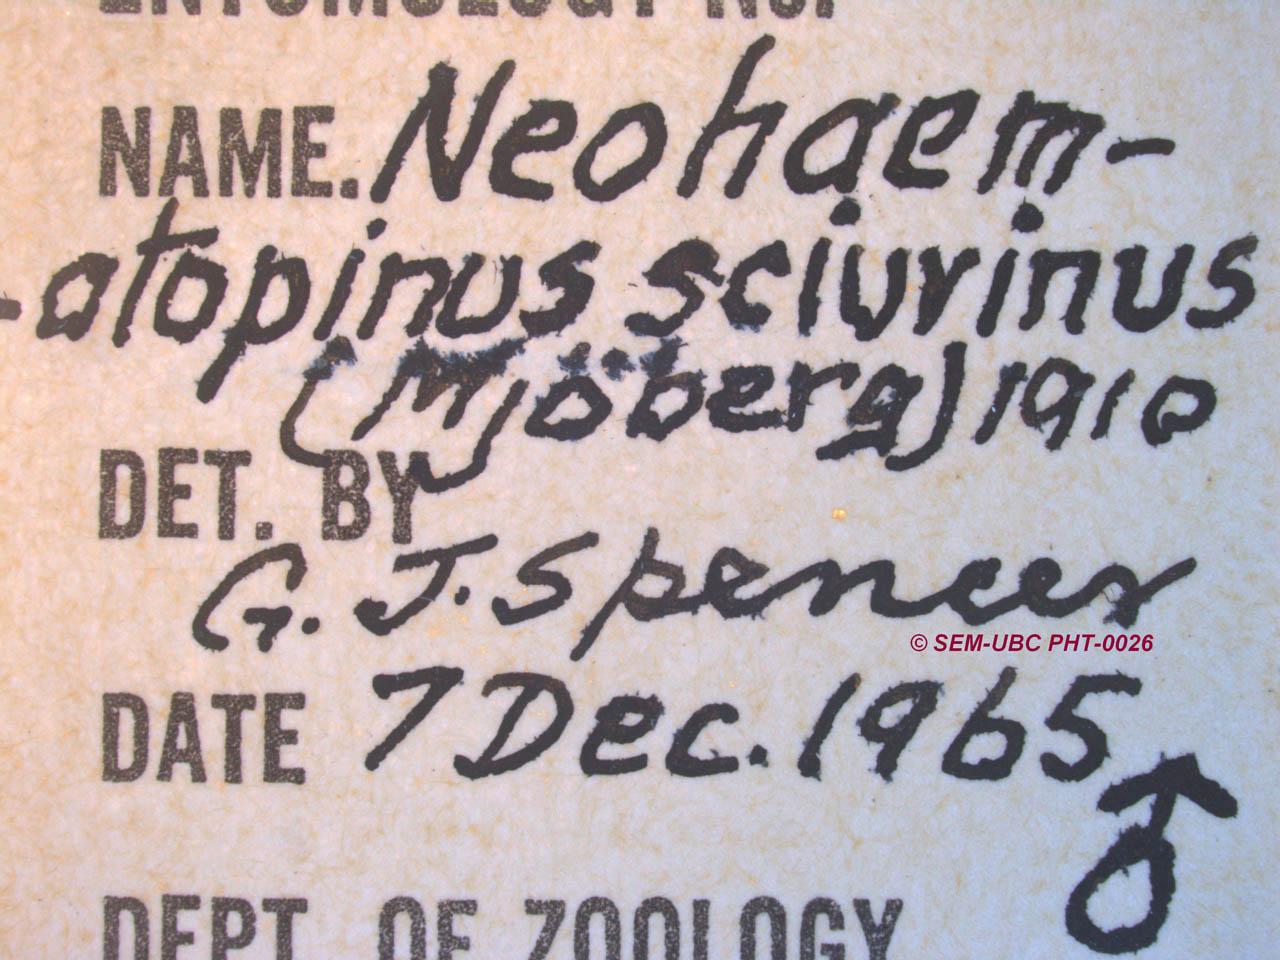 ENTOMOLOGY NO.
NAME. Neohaem-
-atopinus sciurinus
(Mjöberg) 1910
DET. BY
G. J. Spencer
© SEM-UBC PHT-0026
DATE 7 Dec. 1965
♂
DEPT. OF ZOOLOGY